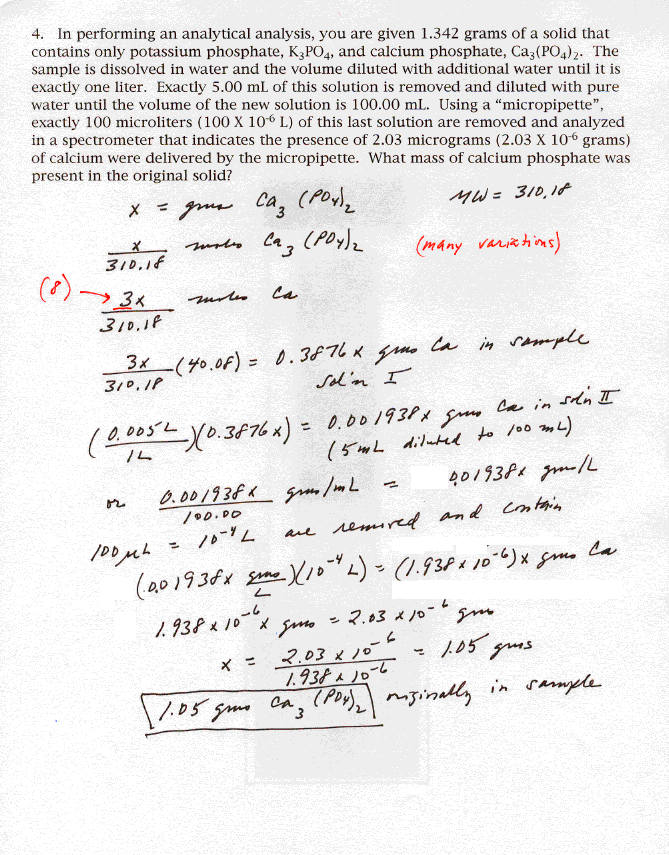 4. In performing an analytical analysis, you are given 1.342 grams of a solid that
contains only potassium phosphate, K₃PO₄, and calcium phosphate, Ca₃(PO₄)₂. The
sample is dissolved in water and the volume diluted with additional water until it is
exactly one liter. Exactly 5.00 mL of this solution is removed and diluted with pure
water until the volume of the new solution is 100.00 mL. Using a “micropipette”,
exactly 100 microliters (100 X 10⁻⁶ L) of this last solution are removed and analyzed
in a spectrometer that indicates the presence of 2.03 micrograms (2.03 X 10⁻⁶ grams)
of calcium were delivered by the micropipette. What mass of calcium phosphate was
present in the original solid?
x = grms Ca₃(PO₄)₂ MW = 310.18
x/310.18 moles Ca₃(PO₄)₂ (many variations)
(8) → 3x/310.18 moles Ca
3x/310.18 (40.08) = 0.3876 x grms Ca in sample
Sol'n I
(0.005L/1L)(0.3876x) = 0.001938x grms Ca in soln II
(5mL diluted to 100 mL)
or 0.001938x/100.00 grms/mL = 0.01938x grm/L
100 µL = 10⁻⁴ L are removed and contain
(.001938x grms/L)(10⁻⁴ L) = (1.938 x 10⁻⁶)x grms Ca
1.938 x 10⁻⁶ x grms = 2.03 x 10⁻⁶ grms
x = 2.03 x 10⁻⁶/1.938 x 10⁻⁶ = 1.05 grms
1.05 grms Ca₃(PO₄)₂ originally in sample